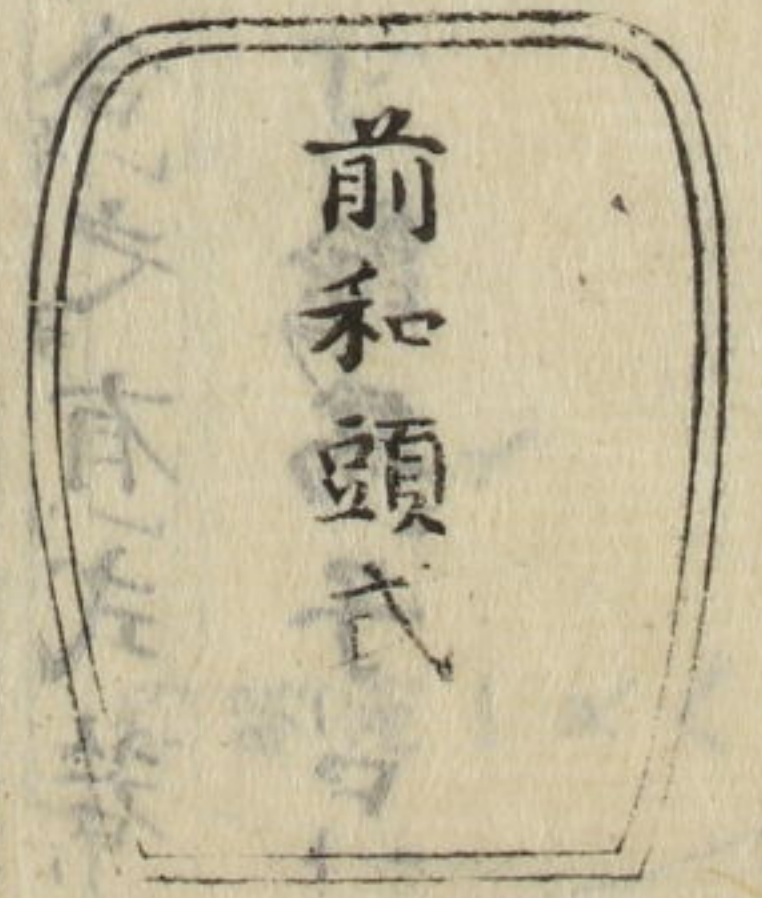 前和頭式